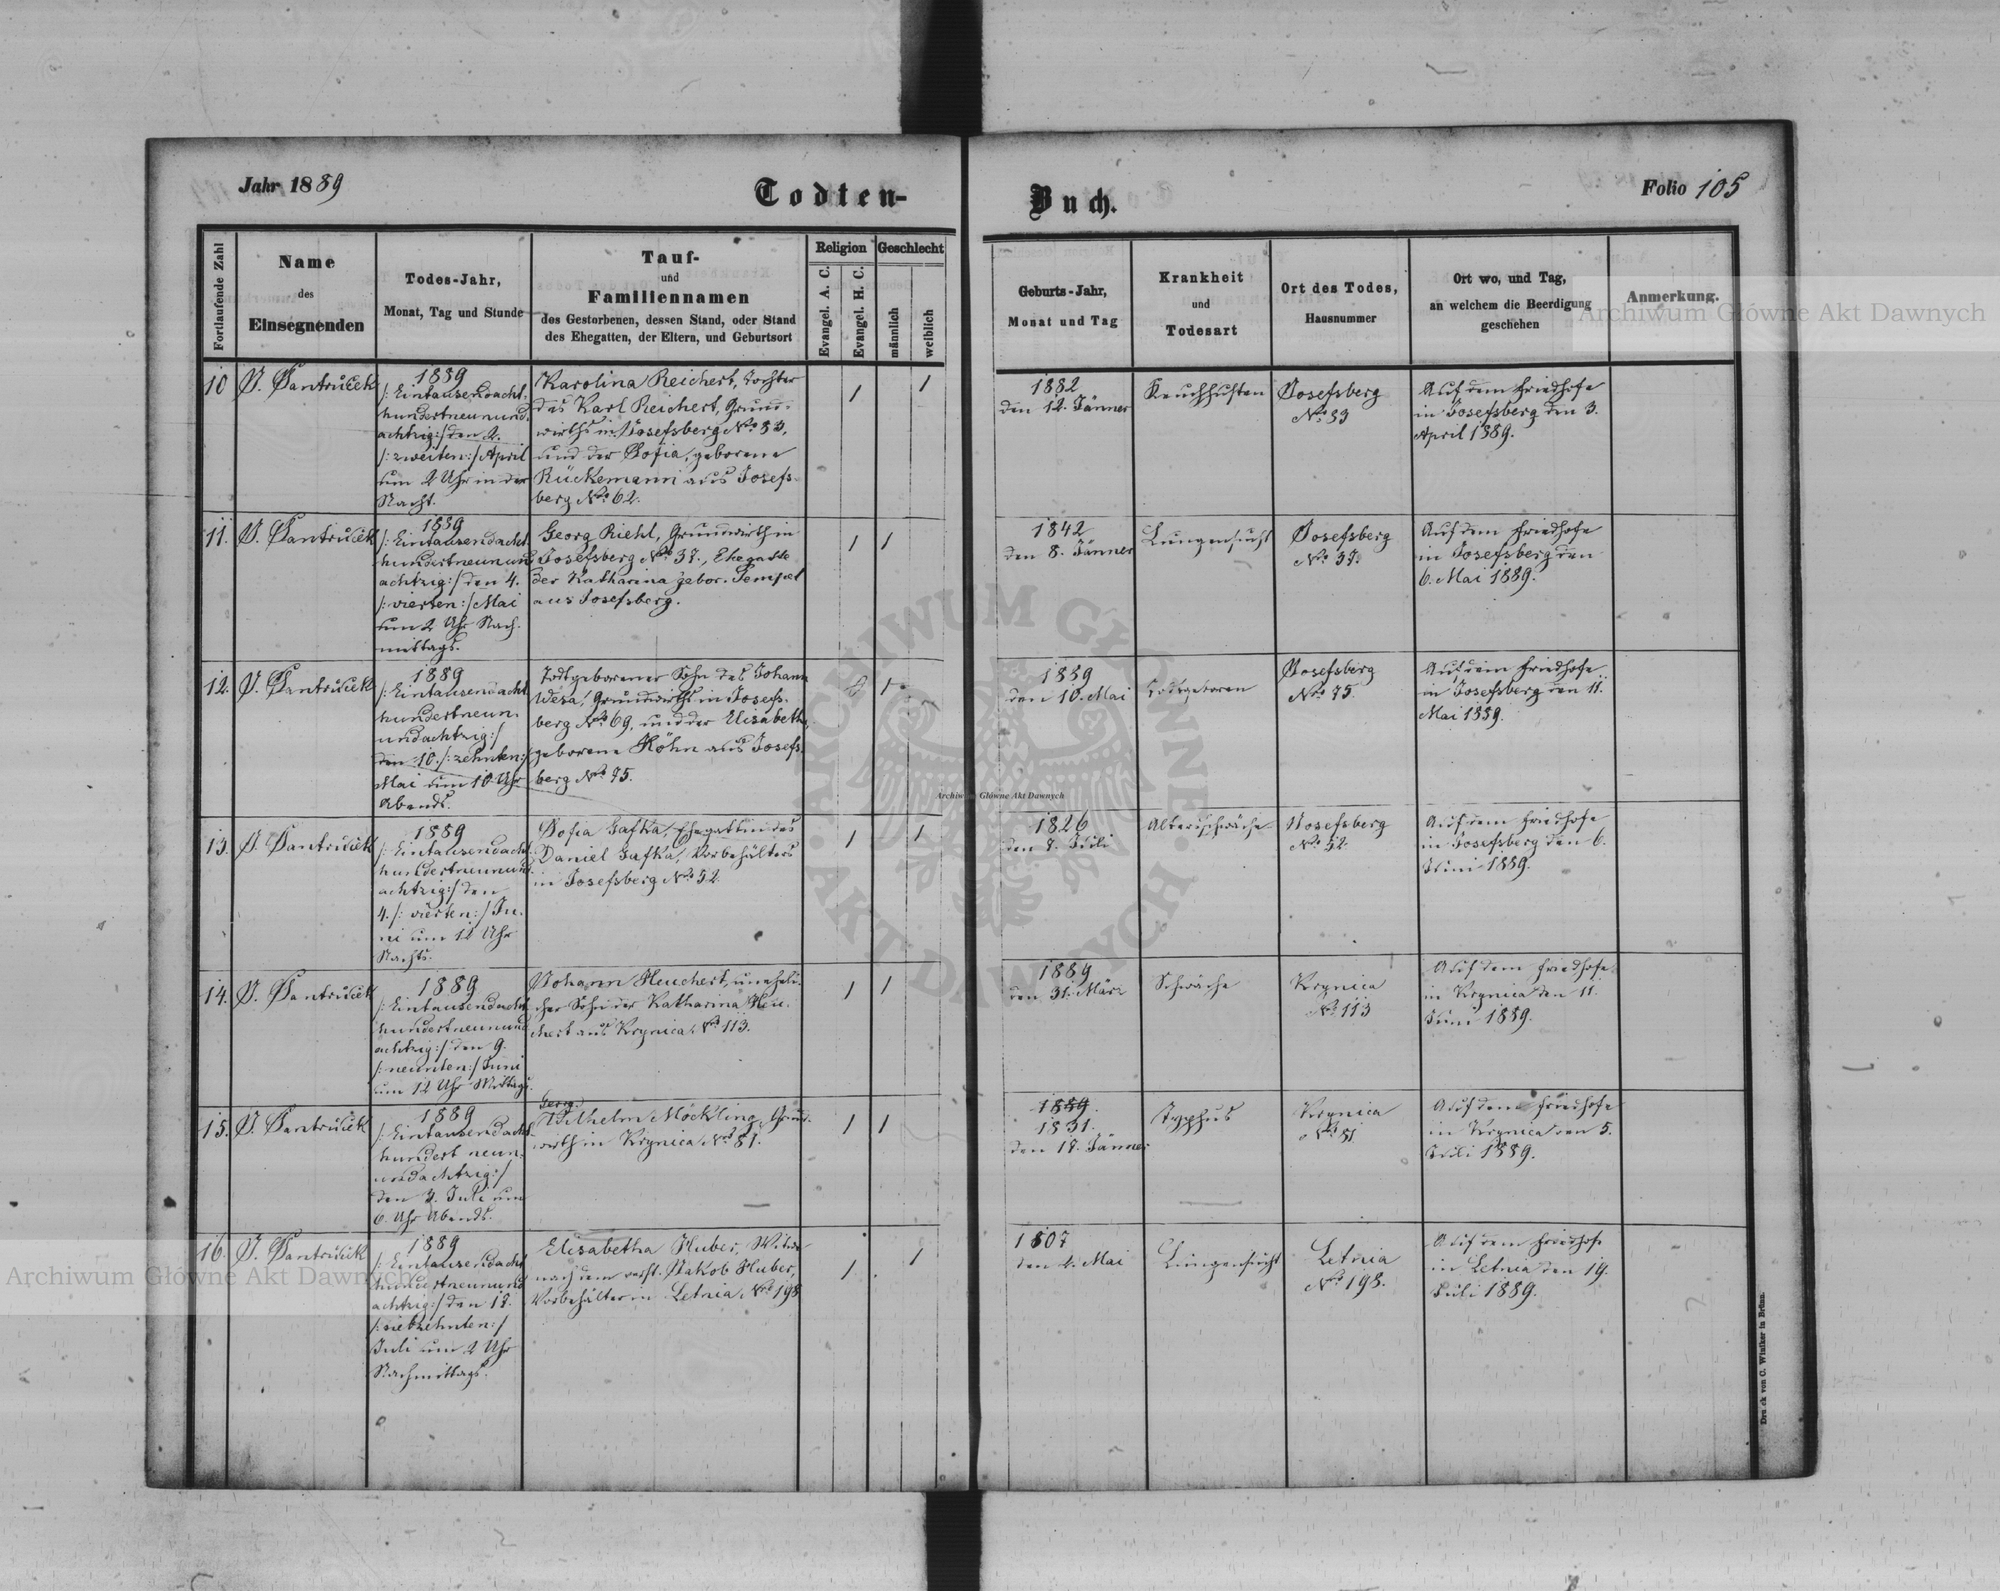 Jahr 1889
Todten-
Buch.
Folio 105
Fortlaufende Zahl
Name
des
Einsegnenden
Todes-Jahr,
Monat, Tag und Stunde
Tauf-
und
Familiennamen
des Gestorbenen, dessen Stand, oder Stand
des Ehegatten, der Eltern, und Geburtsort
Religion
Evangel. A. C.
Evangel. H. C.
Geschlecht
männlich
weiblich
Geburts-Jahr,
Monat und Tag
Krankheit
und
Todesart
Ort des Todes,
Hausnummer
Ort wo, und Tag,
an welchem die Beerdigung
geschehen
Anmerkung.
10
J. Pantruček
1889
/: Eintausendacht-
hundertneunund-
achtzig :/ den 2.
/: zweiten :/ April
um 2 Uhr in der
Nacht.
Karolina Reichert, Tochter
des Karl Reichert, Grund-
wirths in Josefsberg No 83,
und der Sofia, geborene
Rückemann aus Josefs-
berg No 62.
1
1
1882
den 12. Jänner
Keuchhusten
Josefsberg
No 83
Auf dem Friedhofe
in Josefsberg den 3.
April 1889.
11.
J. Pantruček
1889
/: Eintausendacht
hundertneunund
achtzig :/ den 4.
/: vierten :/ Mai
um 2 Uhr Nach-
mittags.
Georg Riehl, Grundwirth in
Josefsberg No 37., Ehegatte
der Katharina gebor. Tempel
aus Josefsberg.
1
1
1842
den 8. Jänner
Lungensucht
Josefsberg
No 37.
Auf dem Friedhofe
in Josefsberg den
6. Mai 1889.
12.
J. Pantruček
1889
/: Eintausendacht
hundertneun-
undachtzig :/
den 10. /: zehnten :/
Mai um 10 Uhr
Abends.
Todtgeborener Sohn des Johann
Wesa, Grundwirths in Josefs-
berg No 69, und der Elisabetha,
geborene Höhn aus Josefs-
berg No 75.
1
1889
den 10. Mai
Todtgeboren
Josefsberg
No 75.
Auf dem Friedhofe
in Josefsberg den 11.
Mai 1889.
13.
J. Pantruček
1889
/: Eintausendacht
hundertneunund
achtzig :/ den
4. /: vierten :/ Ju-
ni um 12 Uhr
Nachts.
Sofia Gafka, Ehegattin des
Daniel Gafka, Vorbehälters
in Josefsberg No 52.
1
1
1826
den 7. Juli
Altersschwäche
Josefsberg
No 52
Auf dem Friedhofe
in Josefsberg den 6.
Juni 1889.
14.
J. Pantruček
1889
/: Eintausendacht
hundertneunund
achtzig :/ den 9.
/: neunten :/ Juni
um 12 Uhr Mittags.
Johann Heuchert, uneheli-
cher Sohn der Katharina Heu-
chert aus Krynica, No 113.
1
1
1889
den 31. März
Schwäche
Krynica
No 113
Auf dem Friedhofe
in Krynica den 11.
Juni 1889.
15.
J. Pantruček
1889
/: Eintausendacht-
hundert neun-
undachtzig :/
den 3. Juli um
6. Uhr Abends.
Georg
Wilhelm Möckling, Grund-
wirth in Krynica No 81.
1
1
1889
1831.
den 17. Jänner
Typhus
Krynica
No 81
Auf dem Friedhofe
in Krynica den 5.
Juli 1889.
16.
J. Pantruček
1889
/: Eintausendacht
hundertneunund
achtzig :/ den 17.
/: siebzehnten :/
Juli um 2 Uhr
Nachmittags.
Elisabetha Huber, Witwe
nach dem verst. Jakob Huber,
Vorbehälterin Letnia, No 198
1
1
1807
den 2. Mai
Lungensucht
Letnia
No 198.
Auf dem Friedhofe
in Letnia den 19.
Juli 1889.
Druck von C. Winiker in Brünn.
Archiwum Główne Akt Dawnych
Archiwum Główne Akt Dawnych
Archiwum Główne Akt Dawnych
ARCHIWUM GŁÓWNE AKT DAWNYCH